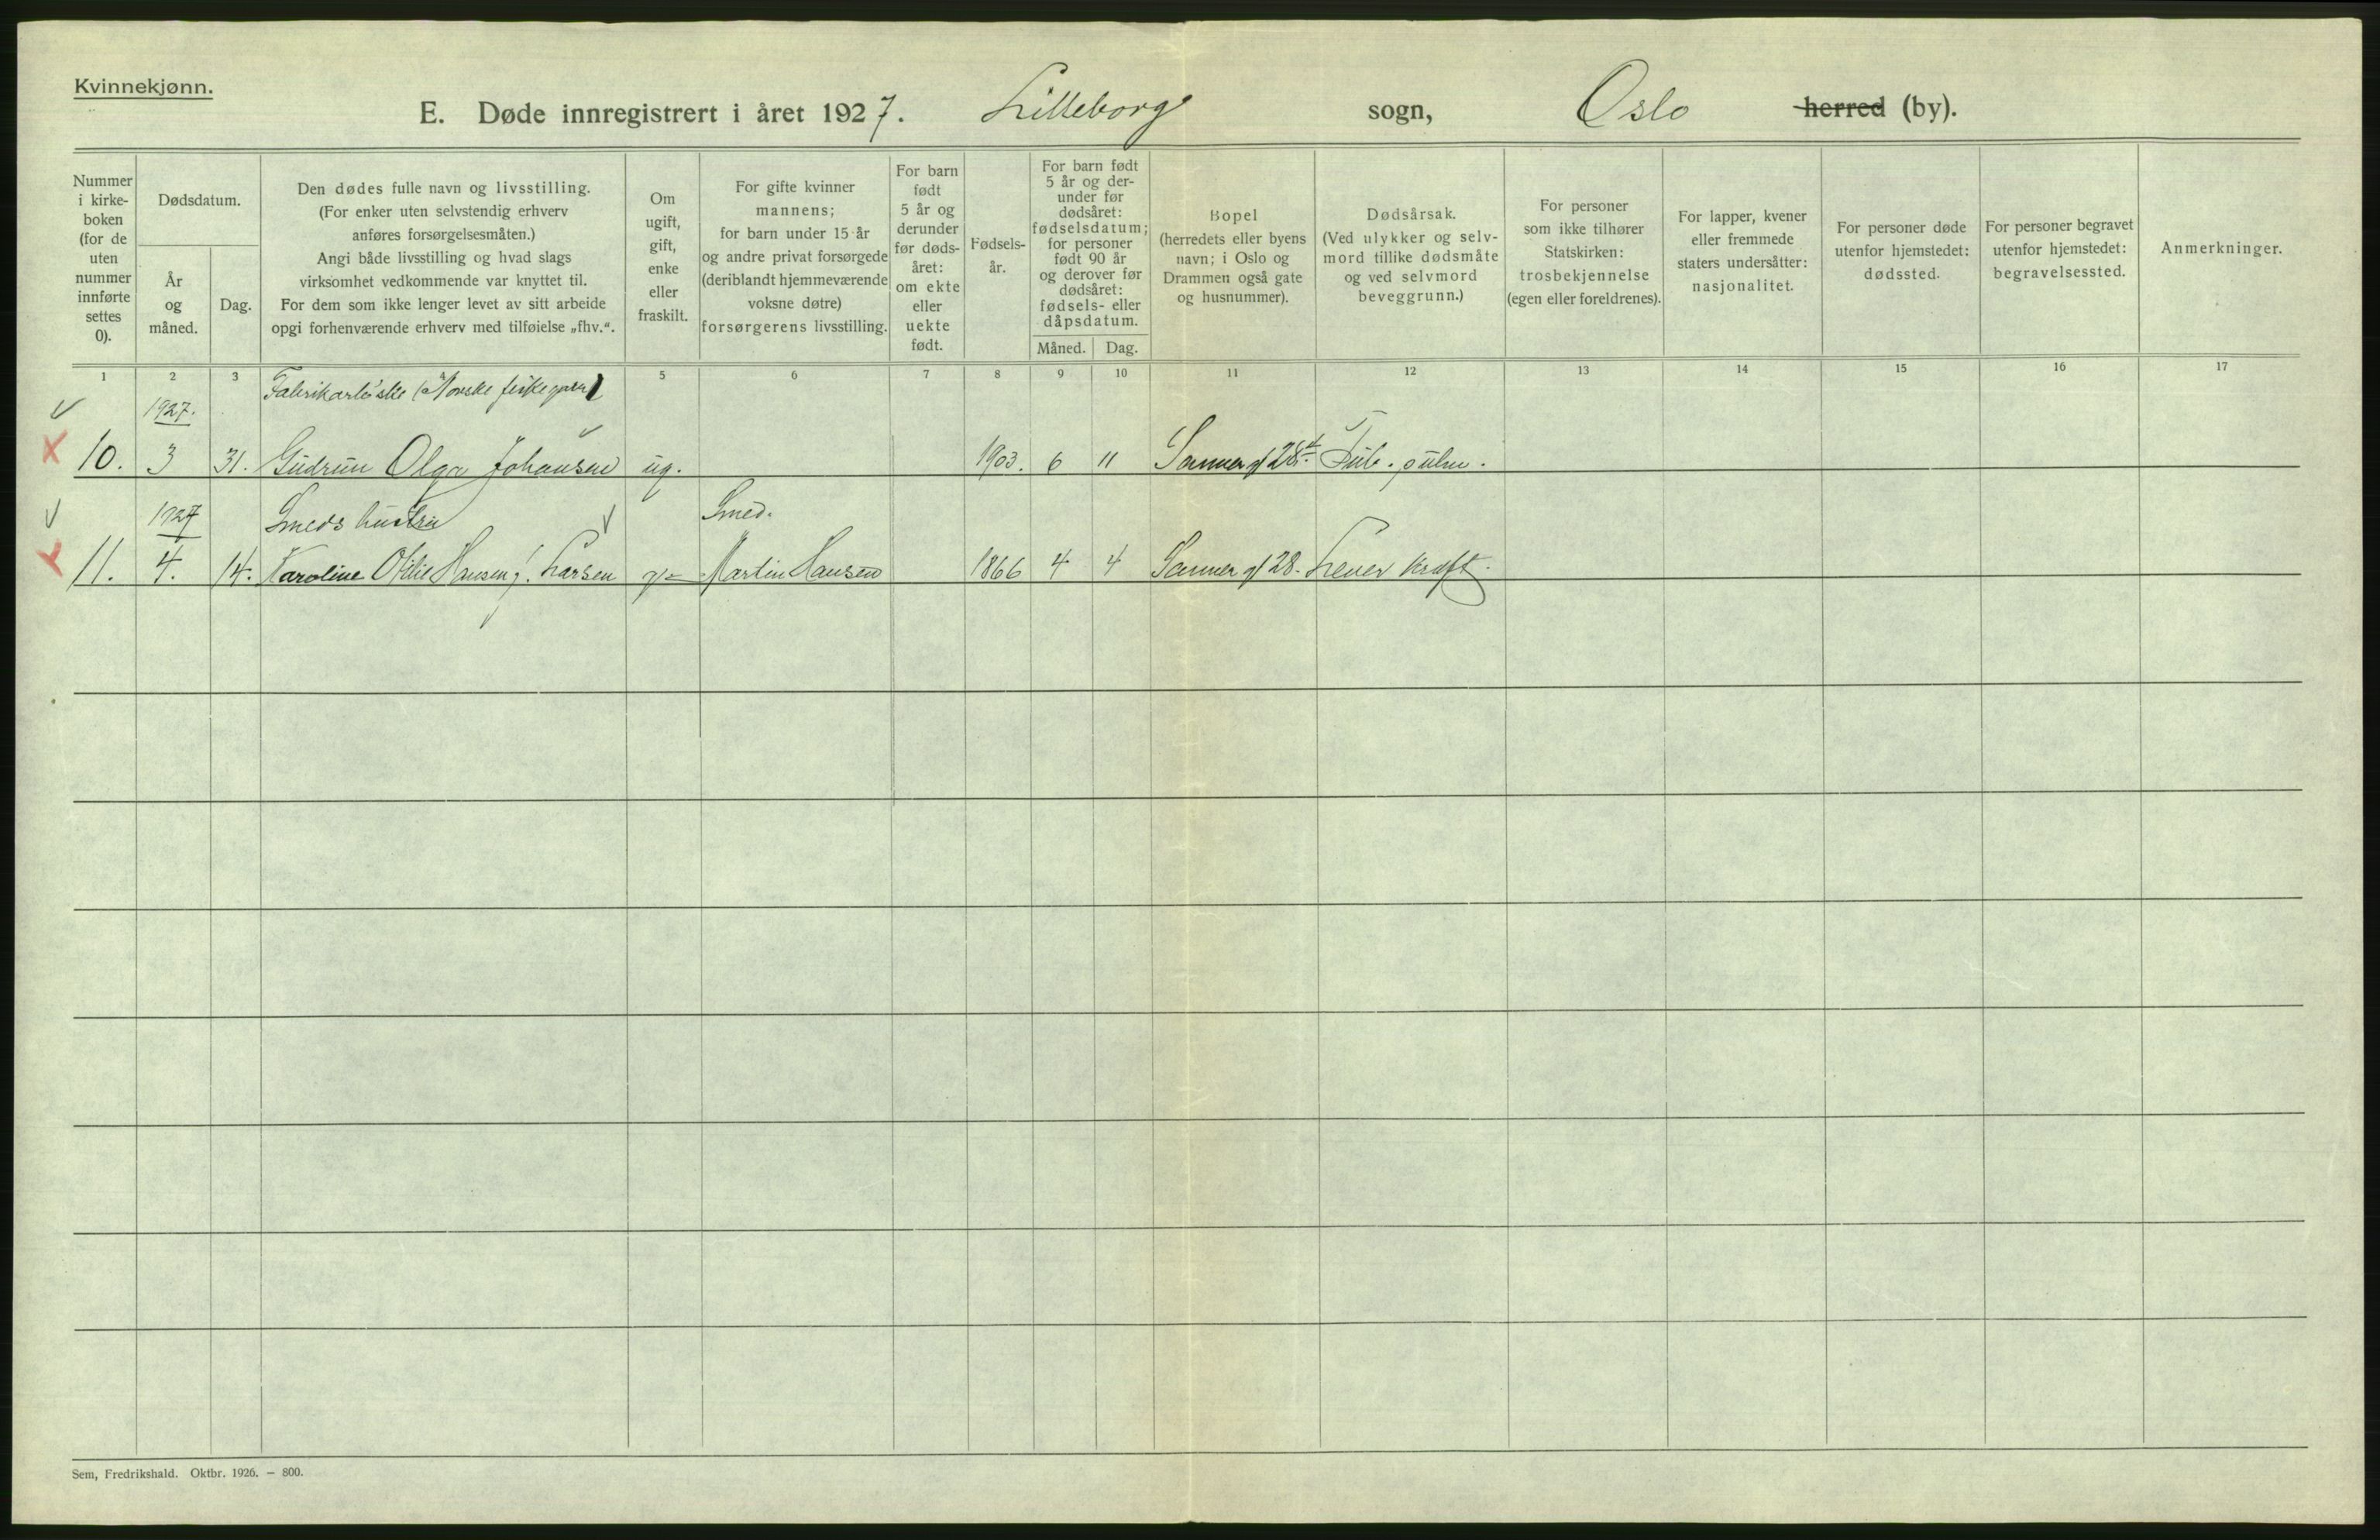 Kvinnekjønn.
E. Døde innregistrert i året 1927. Lilleborg sogn, Oslo herred (by).
Nummer i kirke-boken (for de uten nummer innførte settes 0).
Dødsdatum.
År og måned.
Dag.
Den dødes fulle navn og livsstilling.
(For enker uten selvstendig erhverv
anføres forsørgelsesmåten.)
Angi både livsstilling og hvad slags
virksomhet vedkommende var knyttet til.
For dem som ikke lenger levet av sitt arbeide
opgi forhenværende erhverv med tilføielse „fhv.“.
Om
ugift,
gift,
enke
eller
fraskilt.
For gifte kvinner
mannens;
for barn under 15 år
og andre privat forsørgede
(deriblandt hjemmeværende
voksne døtre)
forsørgerens livsstilling.
For barn
født
5 år og
derunder
før døds-
året:
om ekte
eller
uekte
født.
Fødsels-
år.
For barn født
5 år og der-
under før
dødsåret:
fødselsdatum;
for personer
født 90 år
og derover før
dødsåret:
fødsels- eller
dåpsdatum.
Måned. Dag.
Bopel
(herredets eller byens
navn; i Oslo og
Drammen også gate
og husnummer).
Dødsårsak.
(Ved ulykker og selv-
mord tillike dødsmåte
og ved selvmord
beveggrunn.)
For personer
som ikke tilhører
Statskirken:
trosbekjennelse
(egen eller foreldrenes).
For lapper, kvener
eller fremmede
staters undersåtter:
nasjonalitet.
For personer døde
utenfor hjemstedet:
dødssted.
For personer begravet
utenfor hjemstedet:
begravelsessted.
Anmerkninger.
1 2 3 5 6 7 8 9 10 11 12 13 14 15 16 17
1927. Fabrikarb.ske (Norske
10. 3 31. Gudrun Olga Johansen ug. 1903. 6 11 Sanner g 28 Tub. pulm.
1927 Smeds hustru Smed.
11. 4. 14. Karoline Otilie Hansen f. Larsen g. Martin Hansen 1866 4 4 Sanner g 28. Lever kræft.
Sem, Fredrikshald. Oktbr. 1926. — 800.